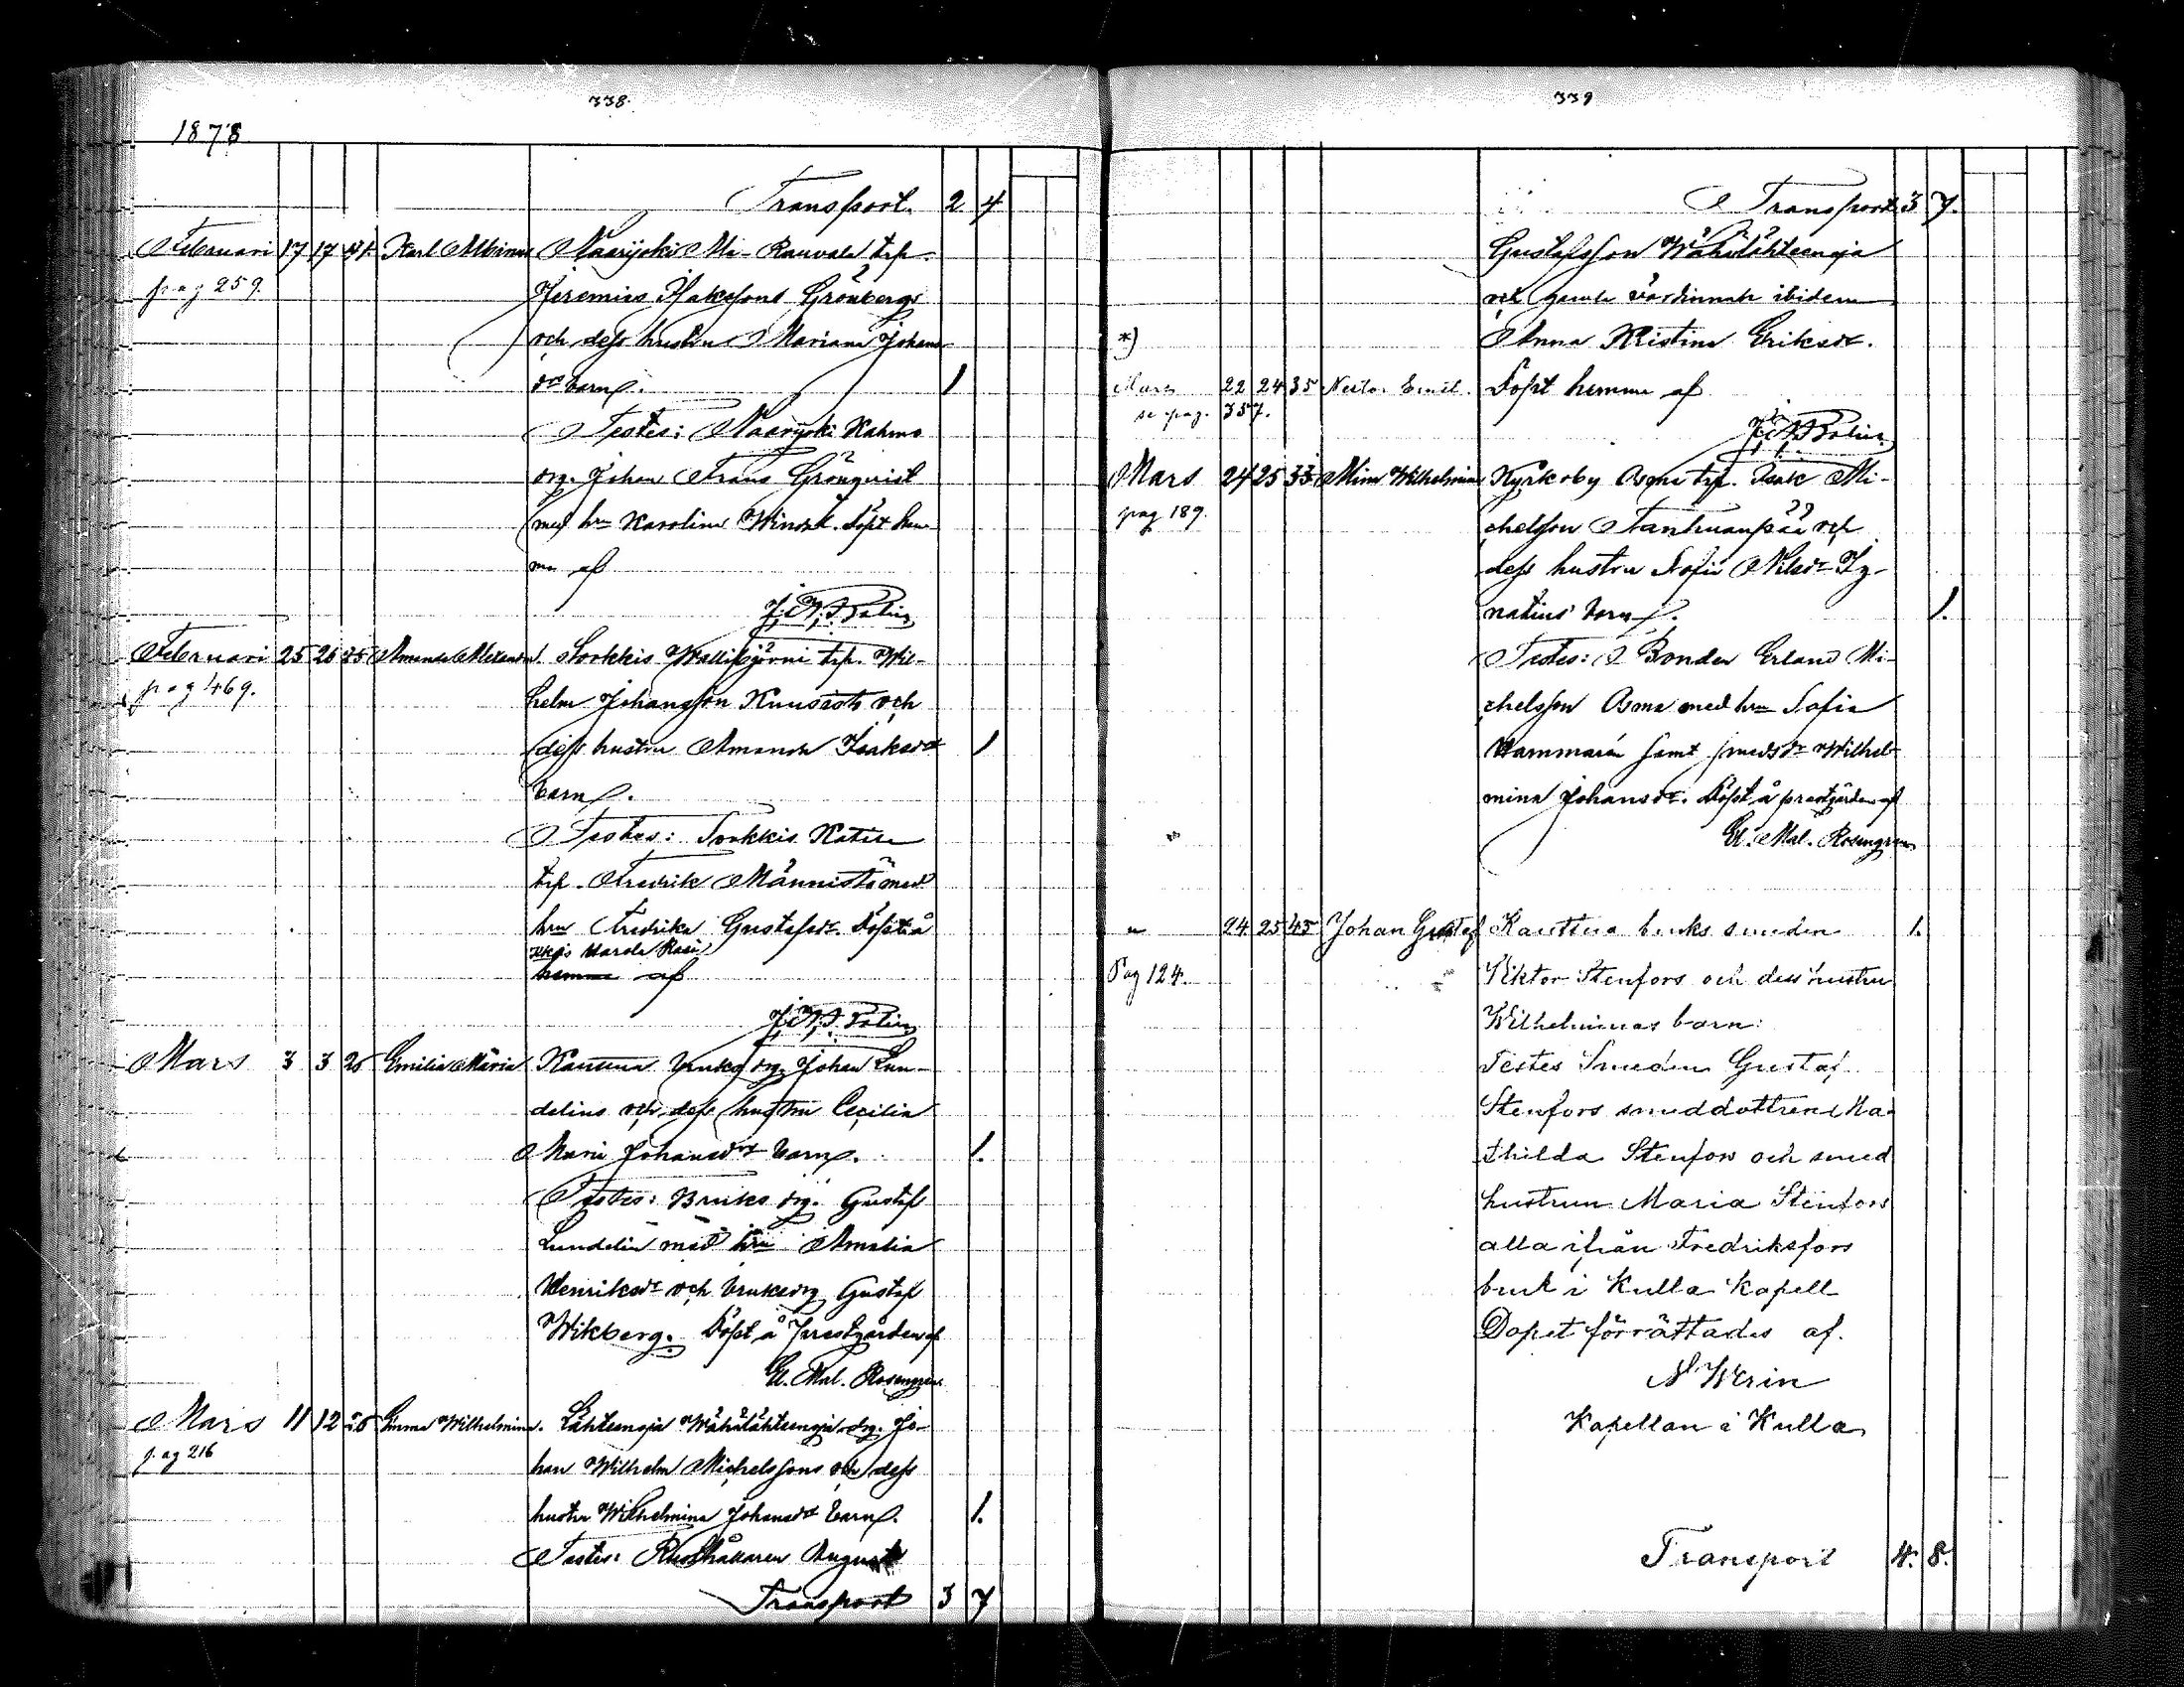 338.
1878.
Transport. 2 4
Februari 17 17 41. Karl Albinus Naarijoki Ali-Rauvala trp.
pag 259. Jeremias Isakssons Grönbergs
och dess hustru Mariana Johans-
drs barn. 1
Testes: Naarijoki Kahma
drg. Johan Frans Grönqvist
med hu Karolina Winork. Döpt hem-
ma af
J. N. Polin
Februari 25 26 25 Amanda Alexandra. Sorkkis Wallikjärvi trp. Wil-
pag 469. helm Johansson Kuusisto och
dess hustru Amanda Isaksdr 1
barn.
Testes: Sorkkis Katiu
trp. Fredrik Männistö med
hru Fredrika Gustafsdr. Döpt å
Harola Rasi
hemma af
J. N. Polin
Mars 3 3 25 Emilia Maria Kauttua bruks drg. Johan Lun-
delins och dess hustru Cecilia
Maria Johansdrs barn. 1.
Testes: Bruks drg. Gustaf
Lundelin med hru Amalia
Henriksdr och bruksdrg Gustaf
Wikberg. Döpt å Prestgården af
El. Mal. Rosengren
Mars 11 12 26 Emma Wilhelmina. Lähteenoja Wähälähteenoja drg. Jo-
pag 216 han Wilhelm Michelssons och dess
hustru Wilhelmina Johansdrs barn. 1.
Testes: Rusthållaren August
Transport 3 7
339
Transport 3 7.
Gustafsson Wähälähteenoja
och gamla värdinnan ibidem
*) Anna Kristina Eriksdr.
Mars 22 24 35 Nestor Emil. Döpt hemma af
se pag. 357.
J. N. Polin
Mars 24 25 33 Mina Wilhelmina Kyrkoby Asma trp. Isak Mi-
pag 189. chelsson Tanhuanpää och
dess hustru Sofia Nilsdr Ig-
natius' barn. 1.
Testes: Bonden Erland Mi-
chelsson Asma med hru Sofia
Hammarén samt smedsdr Wilhel-
mina Johansdr. Döpt å prestgården af
El. Mal. Rosengren
" 24 25 45 Johan Gustaf Kauttua bruks smeden 1.
Pag 124. Viktor Stenfors och dess hustru
Wilhelminas barn:
Testes Smeden Gustaf
Stenfors smeddottren Ma-
thilda Stenfors och smed
hustrun Maria Stenfors
alla ifrån Fredriksfors
bruk i Kulla Kapell
Dopet förrättades af.
N Werin
Kapellan i Kulla
Transport 4. 8.